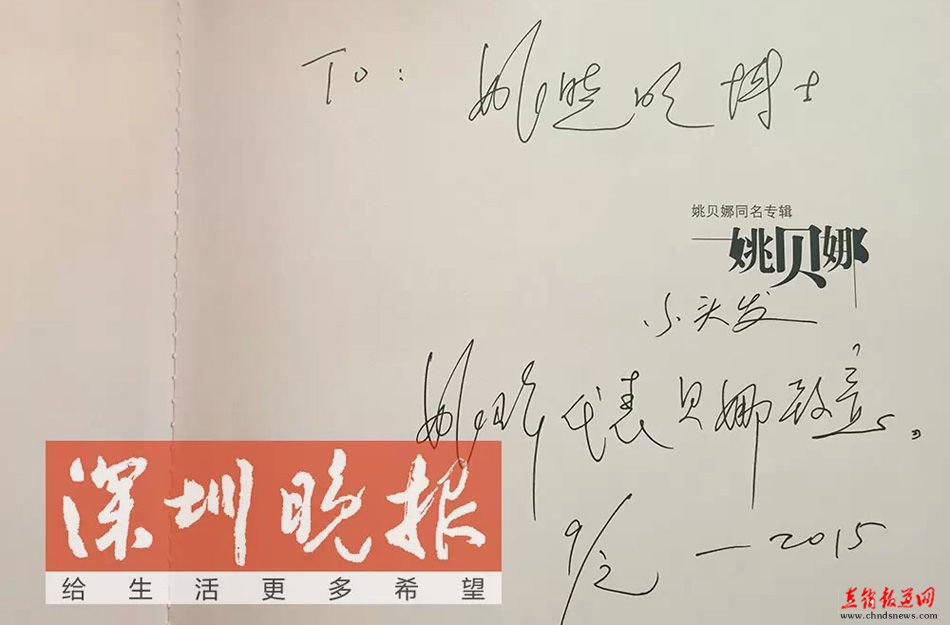 To: 姚晓明博士
姚贝娜同名专辑
姚贝娜
小头发
姚峰代表贝娜致意。
9/2 — 2015
深圳晚报
给生活更多希望
直销报道网
www.chndsnews.com